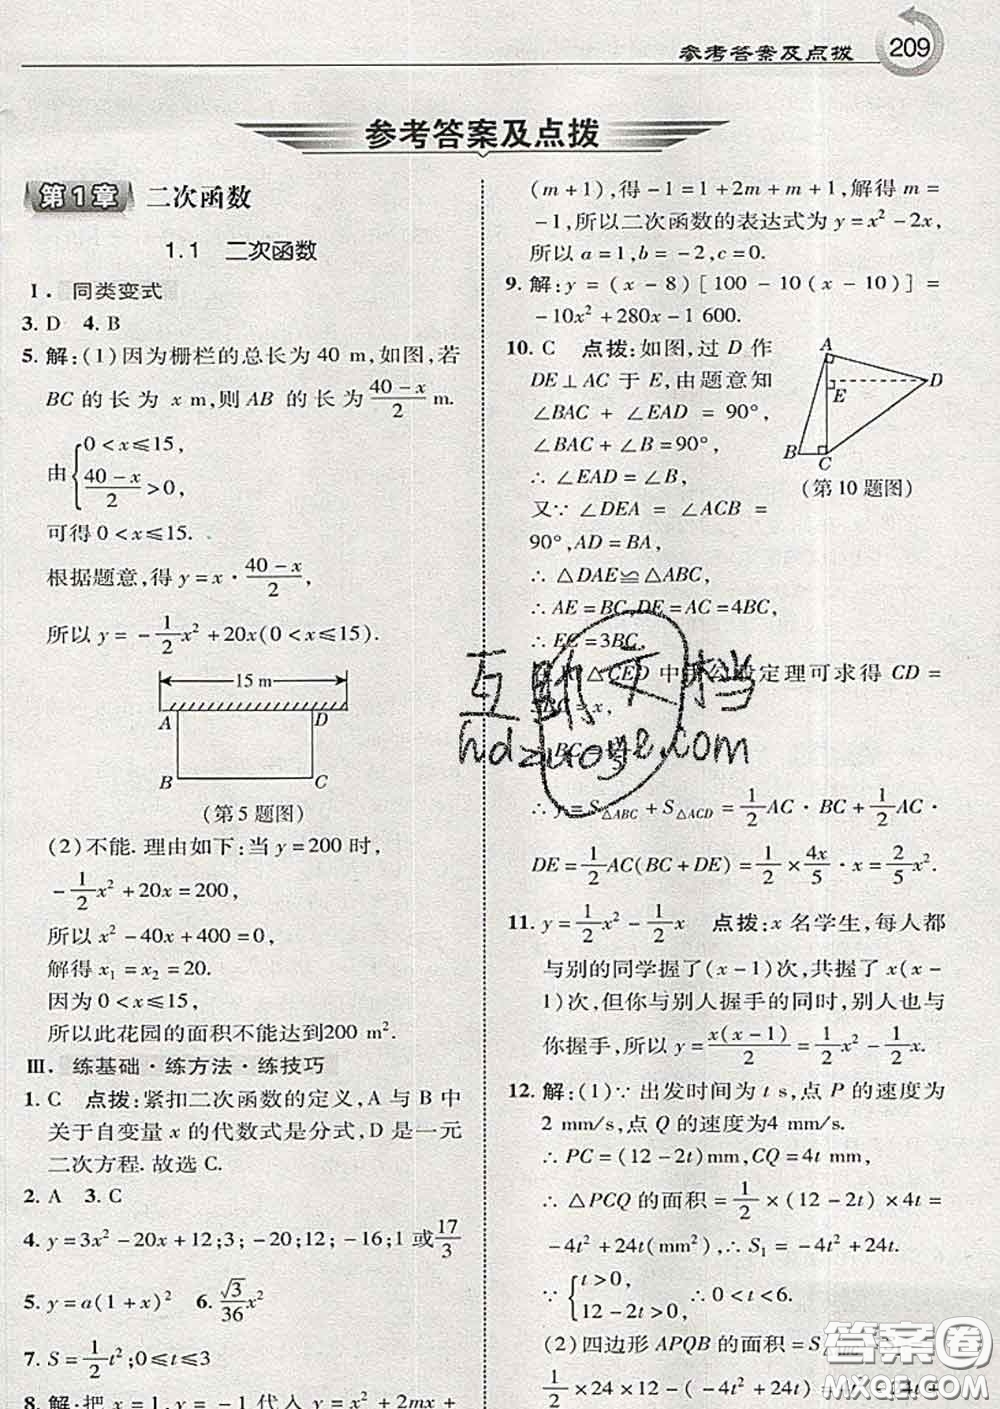 参考答案及点拨
209
参考答案及点拨
第1章 二次函数
1.1 二次函数
Ⅰ. 同类变式
3. D 4. B
5. 解:(1)因为栅栏的总长为 40 m,如图,若
BC 的长为 x m,则 AB 的长为 (40-x)/2 m.
由 { 0<x≤15,
(40-x)/2>0,
可得 0<x≤15.
根据题意,得 y=x·(40-x)/2,
所以 y=-1/2x²+20x(0<x≤15).
15 m
A D
B C
(第 5 题图)
(2)不能. 理由如下:当 y=200 时,
-1/2x²+20x=200,
所以 x²-40x+400=0,
解得 x₁=x₂=20.
因为 0<x≤15,
所以此花园的面积不能达到200 m².
Ⅲ. 练基础·练方法·练技巧
1. C 点拨:紧扣二次函数的定义,A 与 B 中
关于自变量 x 的代数式是分式,D 是一元
二次方程. 故选 C.
2. A 3. C
4. y=3x²-20x+12;3;-20;12;-16;1 或 17/3
5. y=a(1+x)² 6. √3/36x²
7. S=1/2t²;0≤t≤3
8. 解:把 x=1,y=-1 代入 y=x²+2mx+
(m+1),得 -1=1+2m+m+1,解得 m=
-1,所以二次函数的表达式为 y=x²-2x,
所以 a=1,b=-2,c=0.
9. 解:y=(x-8)[100-10(x-10)]=
-10x²+280x-1 600.
10. C 点拨:如图,过 D 作
DE⊥AC 于 E,由题意知
∠BAC+∠EAD=90°,
∠BAC+∠B=90°,
∴∠EAD=∠B.
又∵∠DEA=∠ACB=
90°,AD=BA,
∴△DAE≌△ABC,
∴AE=BC,DE=AC=4BC,
∴EC=3BC.
A
D
E
B
C
(第 10 题图)
△CED 中 定理可求得 CD=
=x,
BC=
∴y=S△ABC+S△ACD=1/2AC·BC+1/2AC·
DE=1/2AC(BC+DE)=1/2×4x/5·x=2/5x².
11. y=1/2x²-1/2x 点拨:x 名学生,每人都
与别的同学握了(x-1)次,共握了 x(x-
1)次,但你与别人握手的同时,别人也与
你握手,所以 y=x(x-1)/2=1/2x²-1/2x.
12. 解:(1)∵出发时间为 t s,点 P 的速度为
2 mm/s,点 Q 的速度为4 mm/s.
∴PC=(12-2t)mm,CQ=4t mm,
∴△PCQ 的面积=1/2×(12-2t)×4t=
-4t²+24t(mm²),∴S₁=-4t²+24t.
∵{ t>0,
12-2t>0, ∴0<t<6.
(2)四边形 APQB 的面积=S
1/2×24×12-(-4t²+24t)=4t²
互助文档
hdzuoye.com
答案圈
MXQE.COM